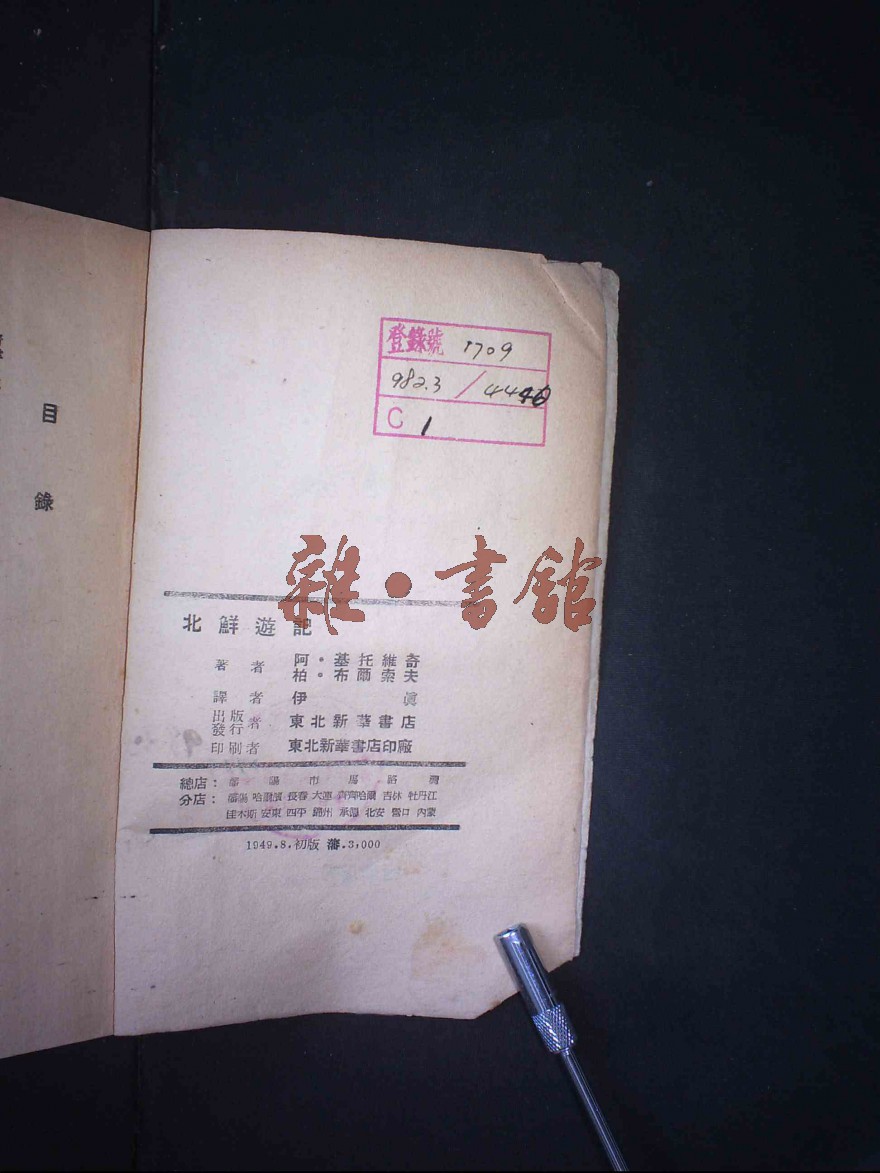 目錄
登錄號 1709
982.3 / 4440
C 1
雜·書館
北鮮遊記
著者 阿·基托維奇
柏·布爾索夫
譯者 伊真
出版
發行者 東北新華書店
印刷者 東北新華書店印廠
總店: 瀋陽市馬路灣
分店: 瀋陽 哈爾濱 長春 大連 齊齊哈爾 吉林 牡丹江
佳木斯 安東 四平 錦州 承德 北安 營口 內蒙
1949.8.初版 瀋.3,000